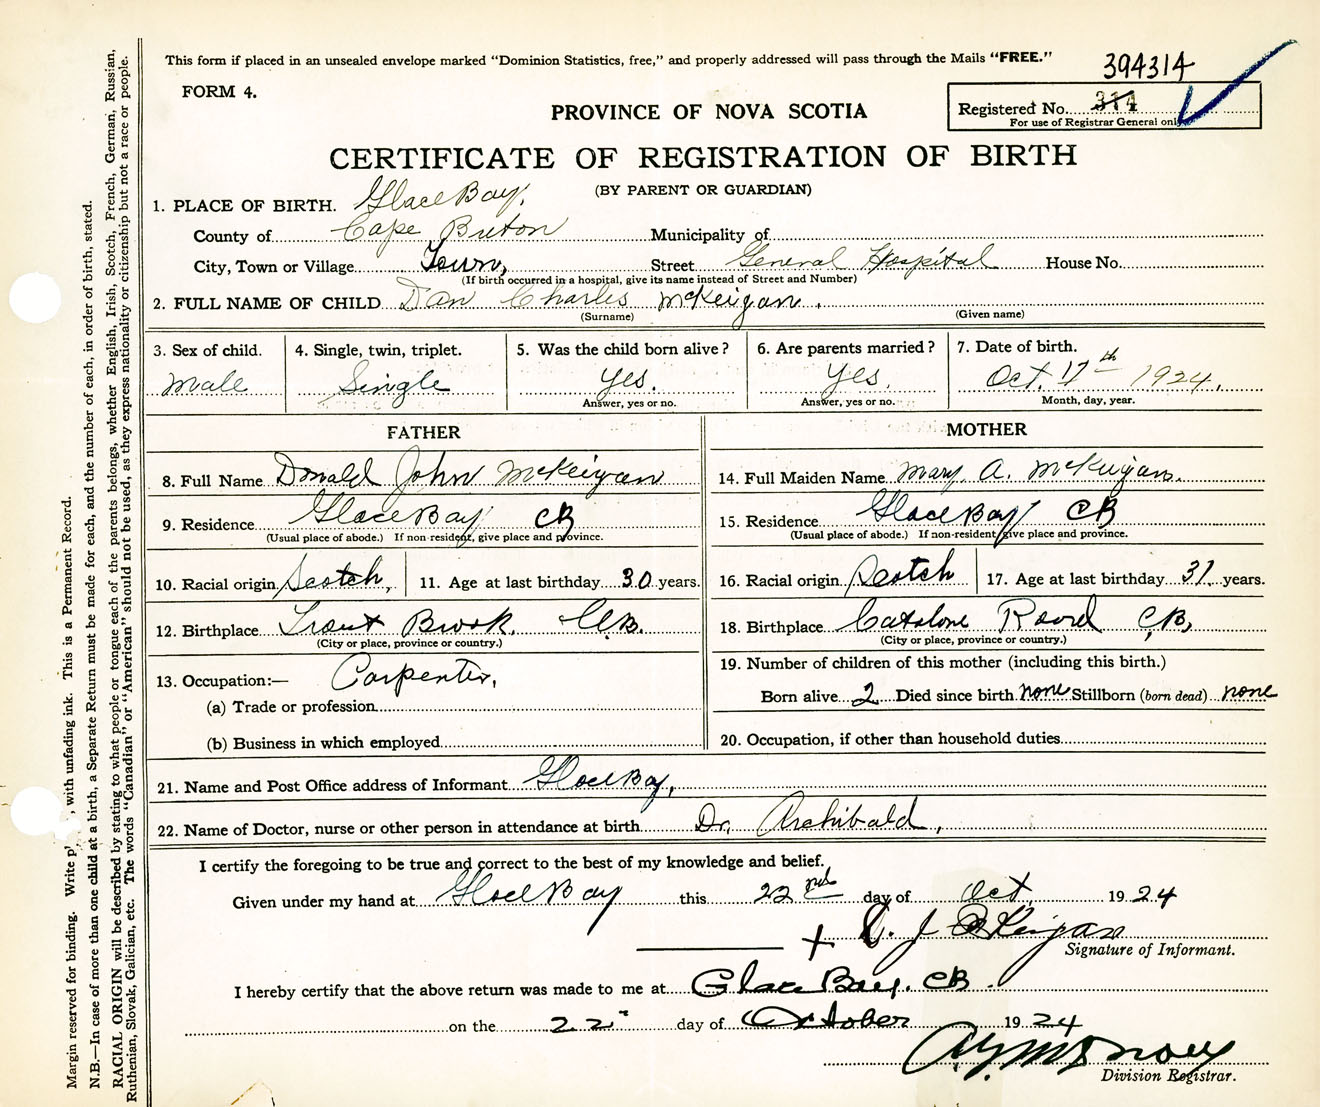 This form if placed in an unsealed envelope marked "Dominion Statistics, free," and properly addressed will pass through the Mails "FREE."
394314
FORM 4.
Registered No. 314
For use of Registrar General only
PROVINCE OF NOVA SCOTIA
CERTIFICATE OF REGISTRATION OF BIRTH
(BY PARENT OR GUARDIAN)
1. PLACE OF BIRTH. Glace Bay,
County of Cape Breton Municipality of
City, Town or Village Town, Street General Hospital House No.
(If birth occurred in a hospital, give its name instead of Street and Number)
2. FULL NAME OF CHILD Dan Charles McKeigan.
(Surname) (Given name)
3. Sex of child. 4. Single, twin, triplet. 5. Was the child born alive? 6. Are parents married? 7. Date of birth.
Male Single Yes. Yes. Oct. 17th 1924.
Answer, yes or no. Answer, yes or no. Month, day, year.
FATHER MOTHER
8. Full Name Donald John McKeigan 14. Full Maiden Name Mary. A. McKeigan.
9. Residence Glace Bay CB 15. Residence Glace Bay CB
(Usual place of abode.) If non-resident, give place and province. (Usual place of abode.) If non-resident, give place and province.
10. Racial origin Scotch, 11. Age at last birthday 30 years. 16. Racial origin Scotch 17. Age at last birthday 31. years.
12. Birthplace Trout Brook, C.B. 18. Birthplace Catalone Road C,B,
(City or place, province or country.) (City or place, province or country.)
13. Occupation:— Carpenter, 19. Number of children of this mother (including this birth.)
(a) Trade or profession Born alive 2 Died since birth none Stillborn (born dead) none
(b) Business in which employed 20. Occupation, if other than household duties
21. Name and Post Office address of Informant Glace Bay,
22. Name of Doctor, nurse or other person in attendance at birth Dr. Archibald,
I certify the foregoing to be true and correct to the best of my knowledge and belief.
Given under my hand at Glace Bay this 22nd day of Oct. 1924
J McKeigan
Signature of Informant.
I hereby certify that the above return was made to me at Glace Bay. CB.
on the 22" day of October 1924
Division Registrar.
Margin reserved for binding. Write , with unfading ink. This is a Permanent Record.
N.B.—In case of more than one child at a birth, a Separate Return must be made for each, and the number of each, in order of birth, stated.
RACIAL ORIGIN will be described by stating to what people or tongue each of the parents belongs, whether English, Irish, Scotch, French, German, Russian,
Ruthenian, Slovak, Galician, etc. The words "Canadian" or "American" should not be used, as they express nationality or citizenship but not a race or people.